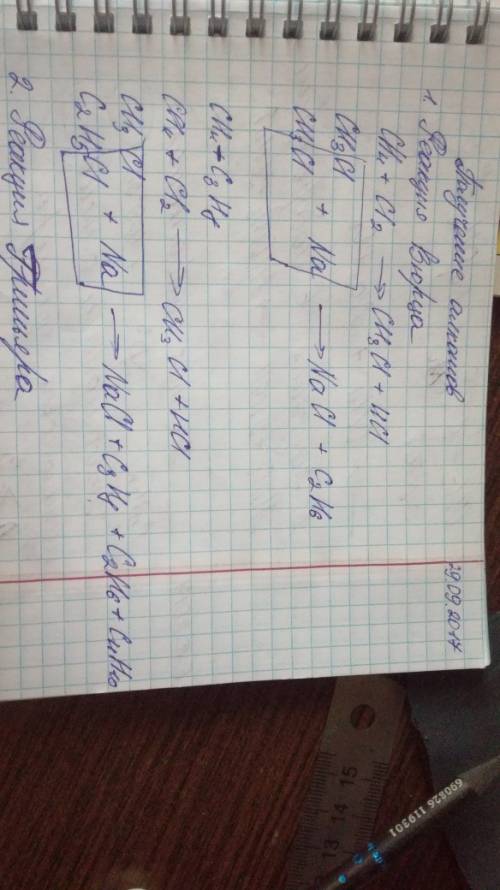 29.09.2017
Получение алканов
1. Реакция Вюрца
CH4 + Cl2 → CH3Cl + HCl
CH3Cl
CH3Cl + Na → NaCl + C2H6
CH4 + C3H8
CH4 + Cl2 → CH3Cl + HCl
CH3 Cl
C2H5Cl + Na → NaCl + C3H8 + C2H6 + C4H10
2. Реакция Гриньяра
690826 119301
15
14
13
12